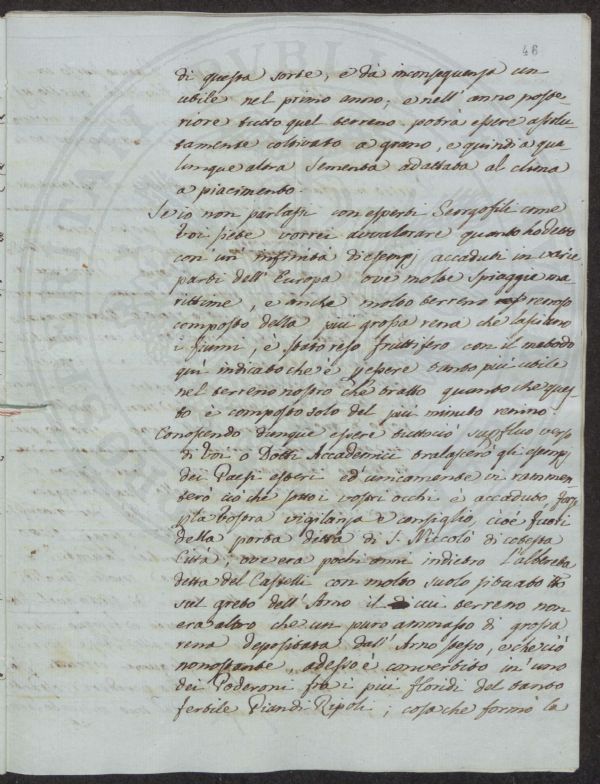 48
di questa sorte, e dà inconseguenza un
utile nel primo anno; e nell'anno poste-
riore tutto quel terreno potrà essere assolu-
tamente coltivato a grano, e quindi a qua
lunque altra sementa adattata al clima
a piacimento.
Se io non parlassi con esperti Georgofili come
Voi siete vorrei avvalorare quanto ho detto
con un infinità di esempj accaduti in varie
parti dell'Europa ove molte spiagge ma
rittime, e anche molto terreno renoso
composto della più grossa rena che lasciano
i fiumi, è stato reso fruttifero con il metodo
qui indicato che è essere tanto più utile
nel terreno nostro che tratto quanto che ques-
to è composto solo del più minuto renino
Conoscendo dunque essere tuttociò superfluo verso
di Voi o Dotti Accademici tralascerò gli esempj
dei Paesi esteri ed unicamente vi rammen
terò ciò che sotto i vostri occhi è accaduto
vostra vigilanza e consiglio, cioè fuori
della porta detta di S. Niccolò di cotesta
Città; ove era pochi anni indietro l'Albereta
detta del Castelli con molto suolo situato
sul greto dell'Arno il di cui terreno non
era altro che un puro ammasso di grossa
rena depositata dall'Arno stesso, e che ciò
nonostante, adesso è convertito in uno
dei Poderoni fra i più floridi del tanto
fertile Pian di Ripoli; cosa che formò la